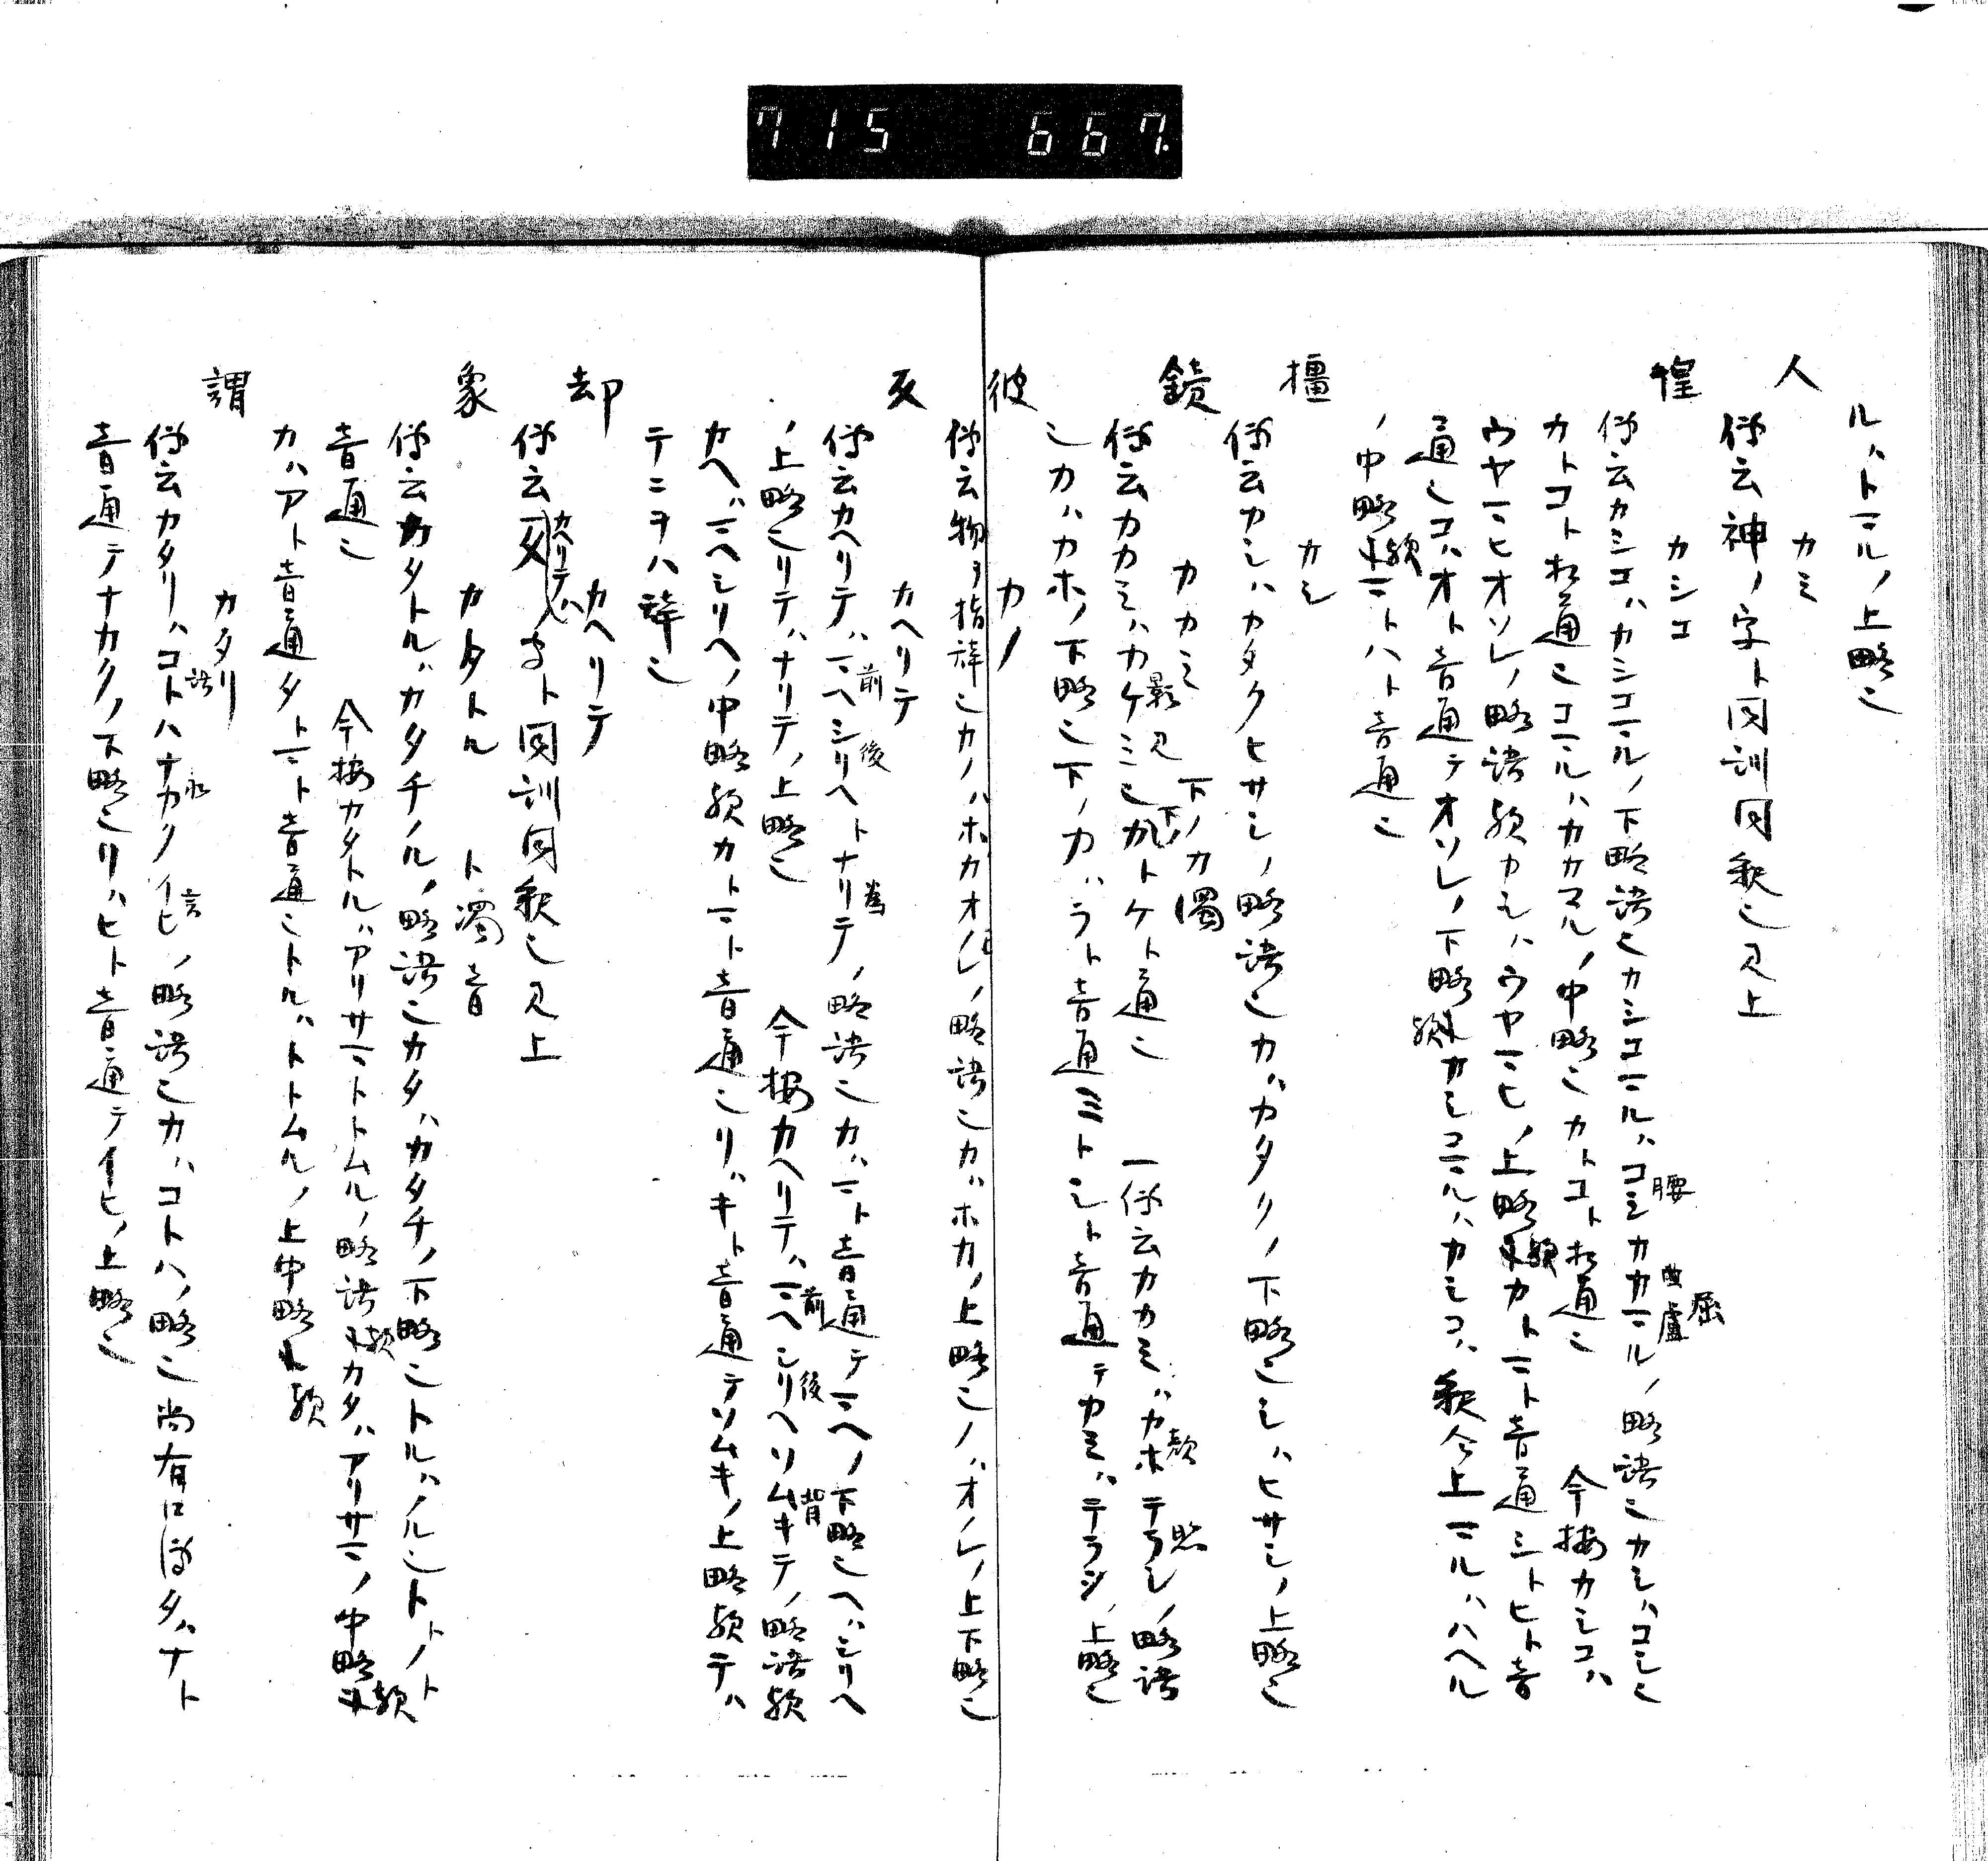 715 667.
ルハトマルノ上略也
人 カミ
伝云神ノ字ト同訓同釈也見上
惶 カシコ
伝云カシコハカシコマルノ下略語也カシコマルハコシカカマルノ略語也カシハコシ也
腰 曲 屈 盧
カトコト相通也コマルハカカマルノ中略也カトコト相通也 今按カシコハ
ウヤマヒオソレノ略語歟カシハウヤマヒノ上略歟カトマト音通シトヒト音
通也コハオト音通テオソレノ下略歟カシコマルハカシコハ釈今上マルハハヘル
ノ中略歟マトハト音通也
橿 カシ
伝云カシハカタクヒサシノ略語也カハカタクノ下略也シハヒサシノ上略也
鏡 カカミ 下ノカ濁
伝云カカミハカケミ也カトケト通也 一伝云カカミハカホテラシノ略語
影見 下ノ 顔 照
也カハカホノ下略也下ノカハラト音通ミトシト音通テカミハテラシノ上略也
彼 カノ
伝云物ヲ指辞也カノハホカオレノ略語也カハホカノ上略也ノハオノレノ上下略也
反 カヘリテ
伝云カヘリテハマヘシリヘトナリテノ略語也カハマト音通テマヘノ下略也ヘハシリヘ
前 後 為
ノ上略也リテハナリテノ上略也 今按カヘリテハマヘシリヘソムキテノ略語歟
前 後 背
カヘハマヘシリヘノ中略歟カトマト音通也リハキト音通テソムキノ上略歟テハ
テニヲハ辞也
却 カヘリテ
伝云反字ト同訓同釈也見上
カヘリテハ
象 カタトル ト濁音
伝云カタトルハカタチノルノ略語也カタハカタチノ下略也トルハノル也トトノト
音通也 今按カタトルハアリサマトトムルノ略語歟カタハアリサマノ中略歟
カハアト音通タトマト音通也トルハトトムルノ上中略歟
謂 カタリ
伝云カタリハコトハナカクイヒノ略語也カハコトハノ略也尚有口伝タハナト
語 永 言
音通テナカクノ下略也リハヒト音通テイヒノ上略也